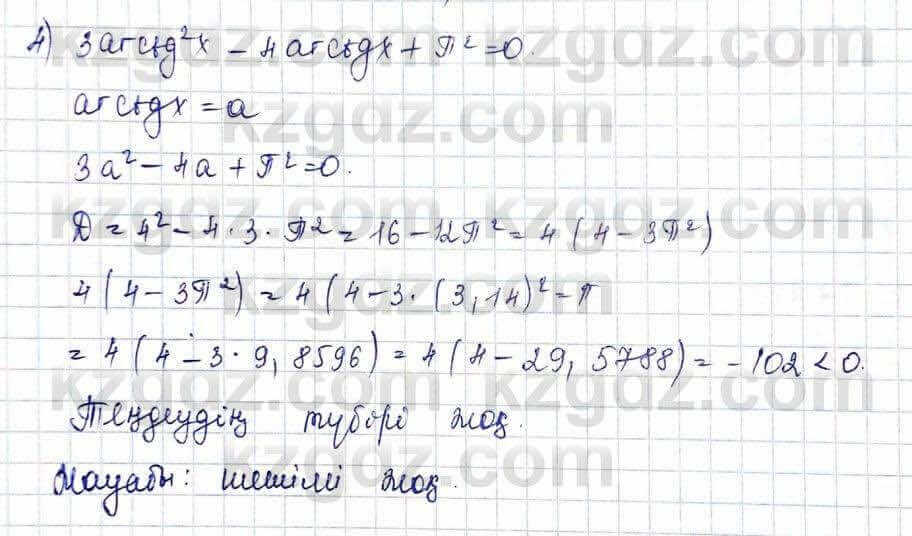 4) 3arctg²x - 4arctgx + π² = 0.
arctgx = a
3a² - 4a + π² = 0.
D = 4² - 4·3·π² = 16 - 12π² = 4(4 - 3π²)
4(4 - 3π²) = 4(4 - 3·(3,14)² = π
= 4(4 - 3·9,8596) = 4(4 - 29,5788) = -102 < 0.
Теңдеудің түбірі жоқ.
Жауабы: шешімі жоқ.
kzgdz.com